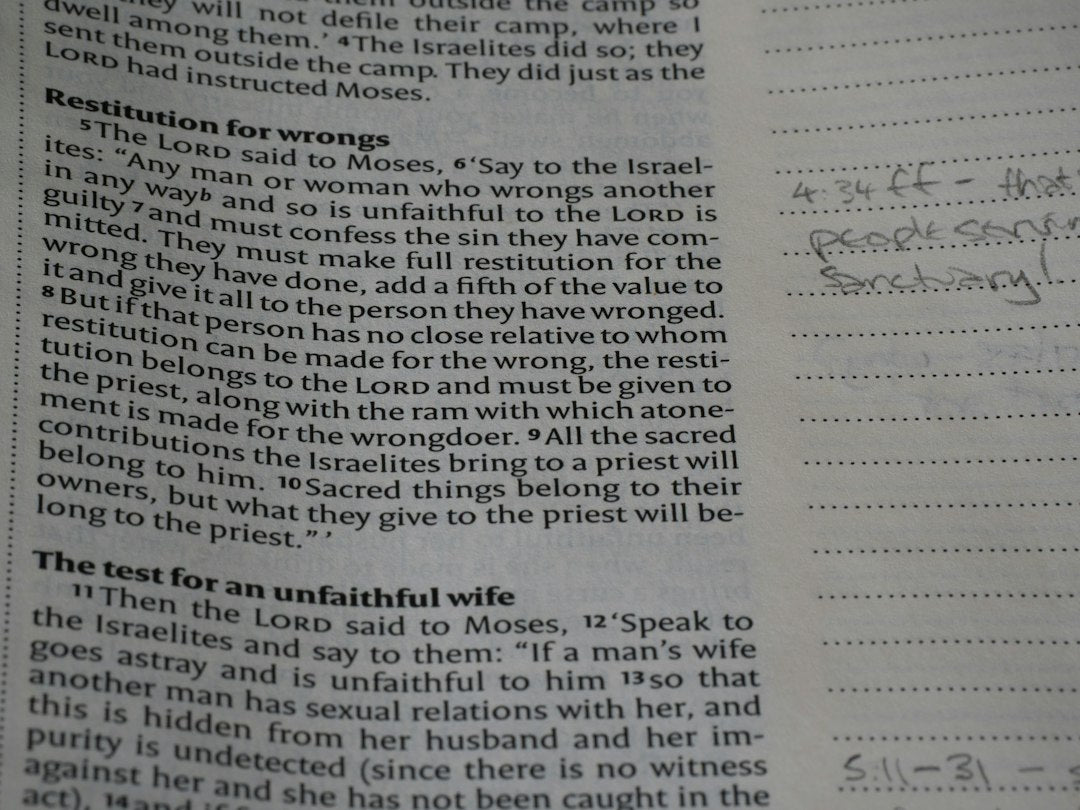 them outside the camp so
they will not defile their camp, where I
dwell among them.’ 4The Israelites did so; they
sent them outside the camp. They did just as the
LORD had instructed Moses.
Restitution for wrongs
5The LORD said to Moses, 6‘Say to the Israel-
ites: “Any man or woman who wrongs another
in any wayb and so is unfaithful to the LORD is
guilty 7and must confess the sin they have com-
mitted. They must make full restitution for the
wrong they have done, add a fifth of the value to
it and give it all to the person they have wronged.
8But if that person has no close relative to whom
restitution can be made for the wrong, the resti-
tution belongs to the LORD and must be given to
the priest, along with the ram with which atone-
ment is made for the wrongdoer. 9All the sacred
contributions the Israelites bring to a priest will
belong to him. 10Sacred things belong to their
owners, but what they give to the priest will be-
long to the priest.”’
The test for an unfaithful wife
11Then the LORD said to Moses, 12‘Speak to
the Israelites and say to them: “If a man’s wife
goes astray and is unfaithful to him 13so that
another man has sexual relations with her, and
this is hidden from her husband and her im-
purity is undetected (since there is no witness
against her and she has not been caught in the
act), 14and if
4:34ff – that
people
sanctuary!
5:11–31 –